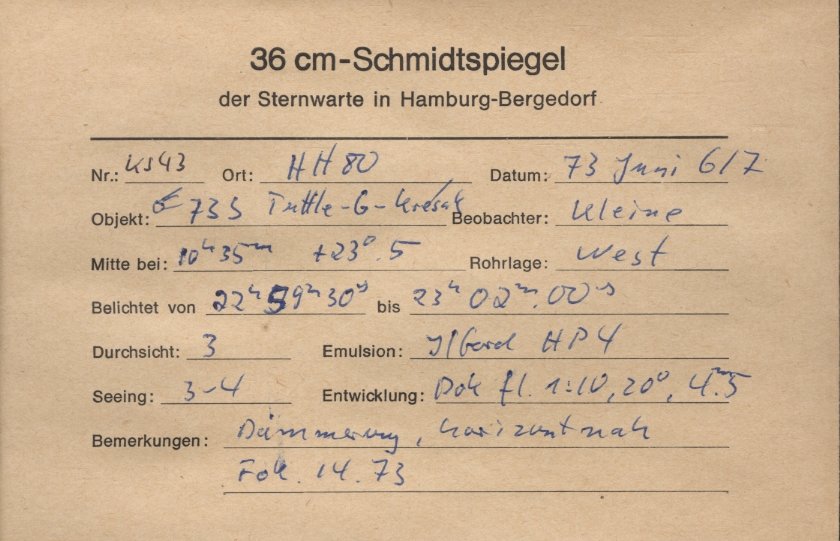 36 cm-Schmidtspiegel
der Sternwarte in Hamburg-Bergedorf
Nr.: KS43 Ort: HH80 Datum: 73 Juni 6/7
Objekt: ☄ 73b Tuttle-G-Kresák Beobachter: Kleine
Mitte bei: 10ʰ35ᵐ +23°.5 Rohrlage: West
Belichtet von 22ʰ59ᵐ30ˢ bis 23ʰ02ᵐ.00ˢ
Durchsicht: 3 Emulsion: Ilford HP4
Seeing: 3-4 Entwicklung: Dok fl. 1:10, 20°, 4ᵐ.5
Bemerkungen: Dämmerung, horizontnah
Fok. 14.73